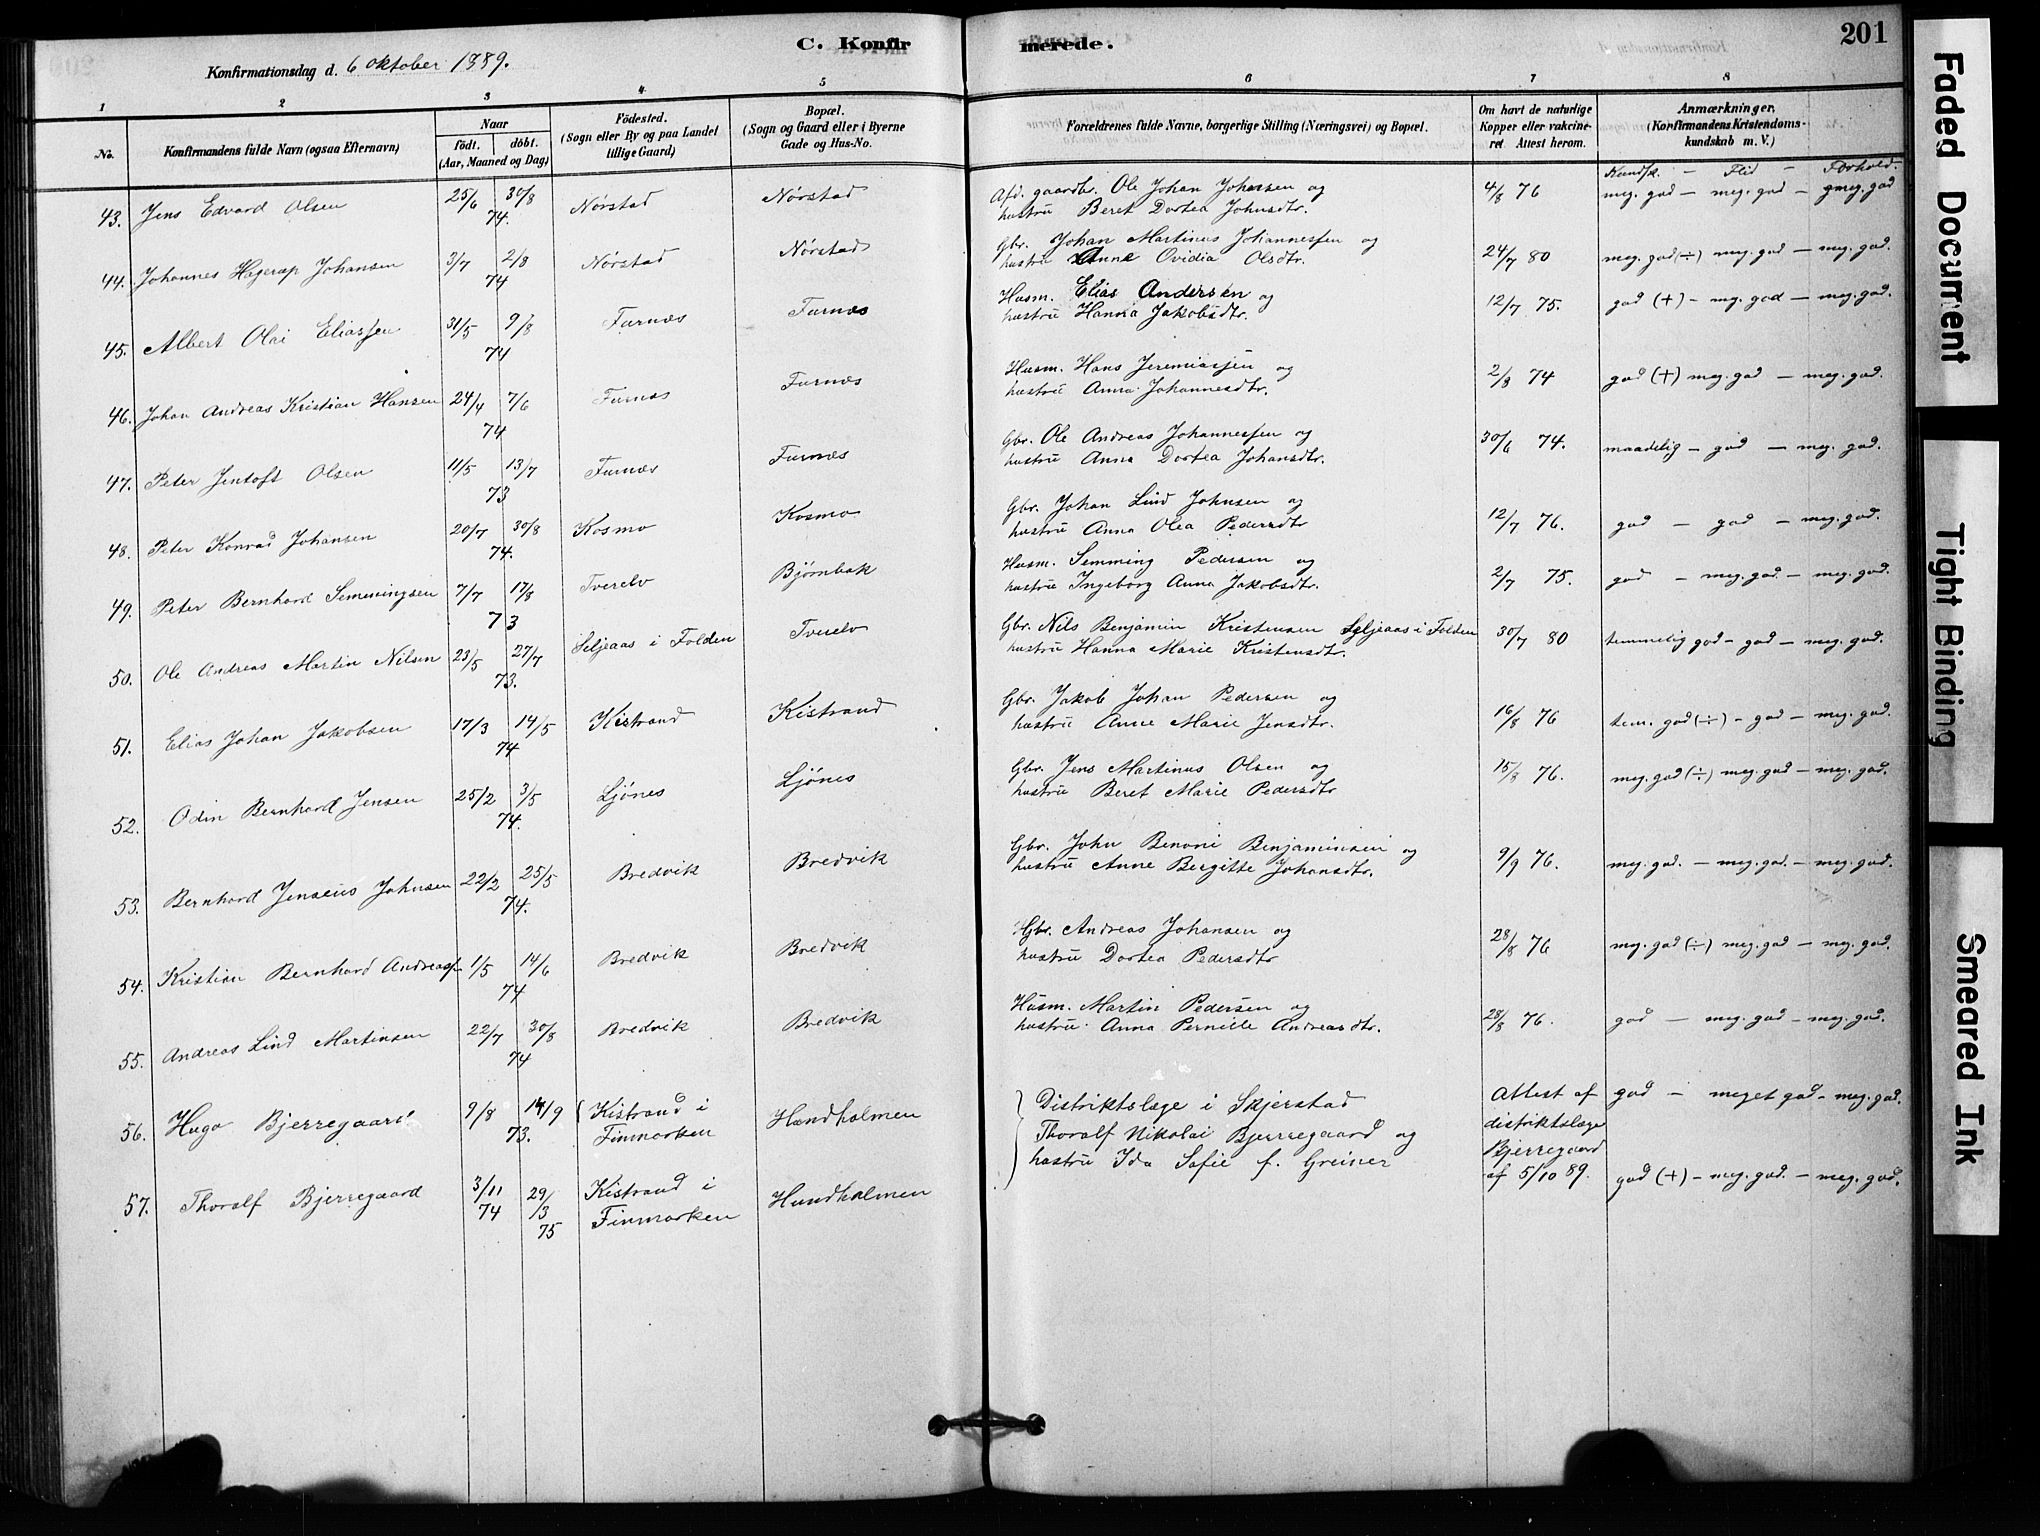 C. Konfirmerede.
201
Konfirmationsdag d. 6 oktober 1889.
1 2 3 4 5 6 7 8
No.
Konfirmandens fulde Navn (ogsaa Efternavn)
Naar
født. døbt.
(Aar, Maaned og Dag)
Fødested.
(Sogn eller By og paa Landet
tillige Gaard)
Bopæl.
(Sogn og Gaard eller i Byerne
Gade og Hus-No.
Forældrenes fulde Navne, borgerlige Stilling (Næringsvei) og Bopæl.
Om havt de naturlige
Kopper eller vakcine-
ret Attest herom.
Anmærkninger.
(Konfirmandens Kristendoms-
kundskab m. V.)
Kundsk. – Flid – Forhold.
43. Jens Edvard Olsen 25/6 30/8 74. Nørstad Nørstad Afd. gaardbr. Ole Johan Johnsen og 4/8 76 meg. god – meg. god – meg. god
hustru Beret Dortea Johnsdtr.
44. Johannes Hagerup Johansen 3/7 2/8 74 Nørstad Nørstad Gbr. Johan Martinus Johannessen og 24/7 80 meg. god (÷) meg. god – meg. god.
hustru Anne Ovidia Olsdtr.
45. Albert Olai Eliassen 31/5 9/8 74 Furnæs Furnæs Husm. Elias Andersen og 12/7 75. god (+) – meg. god – meg. god.
hustru Hanna Jakobsdtr.
46. Johan Andreas Kristian Hansen 24/4 7/6 74 Furnæs Furnæs Husm. Hans Jeremiassen og 2/8 74 god (+) meg. god – meg. god.
hustru Anna Johannesdtr.
47. Peter Jentoft Olsen 11/5 13/7 73 Furnæs Furnæs Gbr. Ole Andreas Johannessen og 30/6 74. maadelig – god – meg. god.
hustru Anna Dortea Johansdtr.
48. Peter Konrad Johansen 20/7 30/8 74. Kosmo Kosmo Gbr. Johan Lind Johnsen og 12/7 76. god – god – meg. god.
hustru Anna Olea Pedersdtr
49. Peter Bernhard Semmingsen 7/7 17/8 73 Tverelv Bjørnbak Husm. Semming Pedersen og 2/7 75. god – meg. god. – meg. god.
hustru Ingeborg Anna Jakobsdtr.
50. Ole Andreas Martin Nilsen 23/5 27/7 73. Seljeaas i Folden Tverelv Gbr. Nils Benjamin Kristensen Seljeaas i Folden 30/7 80 temmelig god – god – meg. god.
hustru Hanna Marie Kristensdtr.
51. Elias Johan Jakobsen 17/3 14/5 74 Kistrand Kistrand Gbr. Jakob Johan Pedersen og 16/8 76 tem. god (÷) – god – meg. god.
hustru Anne Marie Jensdtr.
52. Odin Bernhard Jensen 25/2 3/5 74. Ljønes Ljønes Gbr. Jens Martinus Olsen og 15/8 76. meg. god (÷) meg. god – meg. god.
hustru Beret Marie Pedersdtr
53. Bernhard Jenseus Johnsen 22/2 25/5 74. Bredvik Bredvik Gbr. John Benoni Benjaminsen og 9/9 76. meg. god. – meg. god. – meg. god.
hustru Anne Bergitte Johansdtr.
54. Kristian Bernhard Andreassen 1/5 14/6 74 Bredvik Bredvik Gbr. Andreas Johansen og 28/8 76 meg. god (÷) meg. god – meg. god.
hustru Dortea Pedersdtr
55. Andreas Lind Martinsen 22/7 30/8 74 Bredvik Bredvik Husm. Martin Pedersen og 28/8 76. god – meg. god – meg. god.
hustru Anna Pernille Andreasdtr.
56. Hugo Bjerregaard 9/8 14/9 73. Kistrand i Finmarken Hundholmen god – meget god – meg. god.
Distriktslæge i Skjerstad
Thoralf Nikolai Bjerregaard og
hustru Ida Sofie f. Greiner
Attest af
distriktslæge
Bjerregaard
af 5/10 89.
57. Thoralf Bjerregaard 3/11 74 29/3 75 Kistrand i Finmarken Hundholmen god (+) – meg. god. – meg. god.
Faded Document
Tight Binding
Smeared Ink